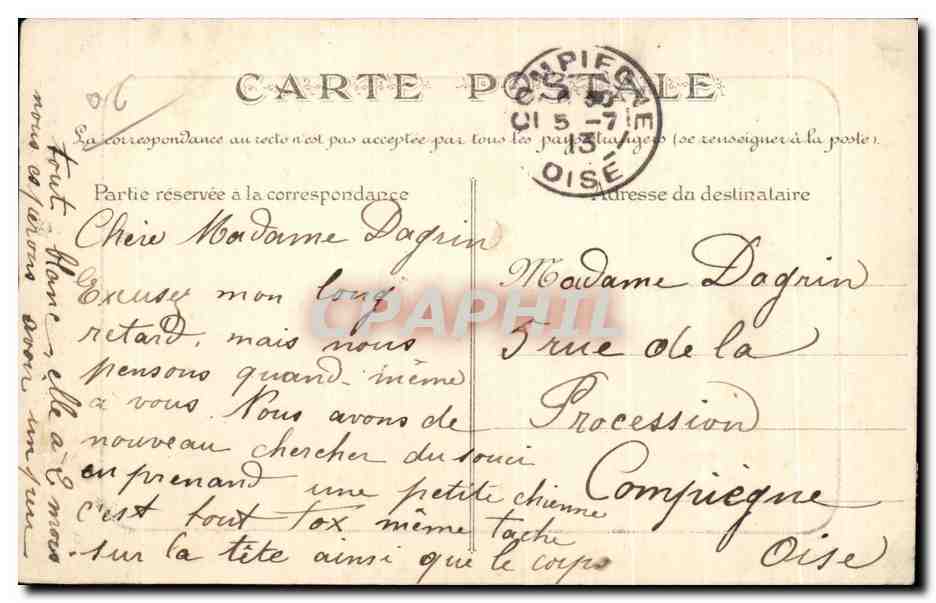 CARTE POSTALE
La correspondance au recto n'est pas acceptée par tous les pays étrangers (se renseigner à la poste).
COMPIEGNE
30
5 -7
13
OISE
Partie réservée à la correspondance
Adresse du destinataire
Chère Madame Dagrin
Excusez mon long
retard, mais nous
pensons quand-même
à vous. Nous avons de
nouveau chercher du souci
en prenand une petite chienne
c'est tout Tox même tache
sur la tête ainsi que le corps
tout blanc, elle a 2 mois
nous esperons avoir un peu
Madame Dagrin
5 rue de la
Procession
Compiègne
Oise
CPAPHIL